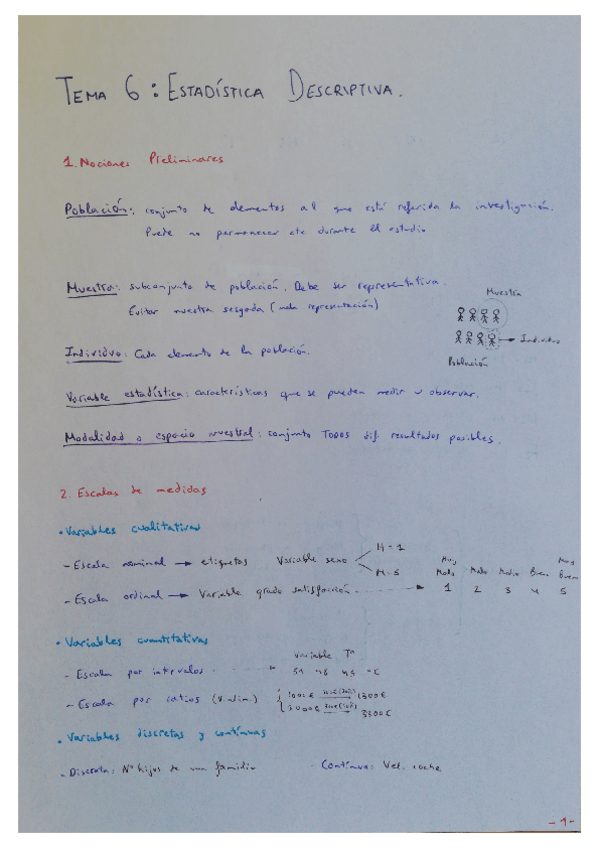 TEMA 6: ESTADÍSTICA DESCRIPTIVA.
1. Nociones Preliminares
Población: conjunto de elementos al que está referida la investigación.
Puede no permanecer cte durante el estudio
Muestra: subconjunto de población. Debe ser representativa.
Evitar muestra sesgada (mala representación)
Muestra
Individuo
Población
Individuo: Cada elemento de la población.
Variable estadística: características que se pueden medir u observar.
Modalidad o espacio muestral: conjunto TODOS dif. resultados posibles.
2. Escalas de medidas
• Variables cualitativas
- Escala nominal → etiquetas Variable sexo
H = 1
M = 5
- Escala ordinal → Variable grado satisfacción
Muy Malo Malo Medio Buen Muy Buen
1 2 3 4 5
• Variables cuantitativas
- Escala por intervalos
Variable Tª
51 48 45 °C
- Escala por ratios
1000€ → 1300€
3000€ → 3300€
• Variables discretas y contínuas
- Discreta: Nº hijos de una familia
- Contínua: Vel. coche
- 1 -